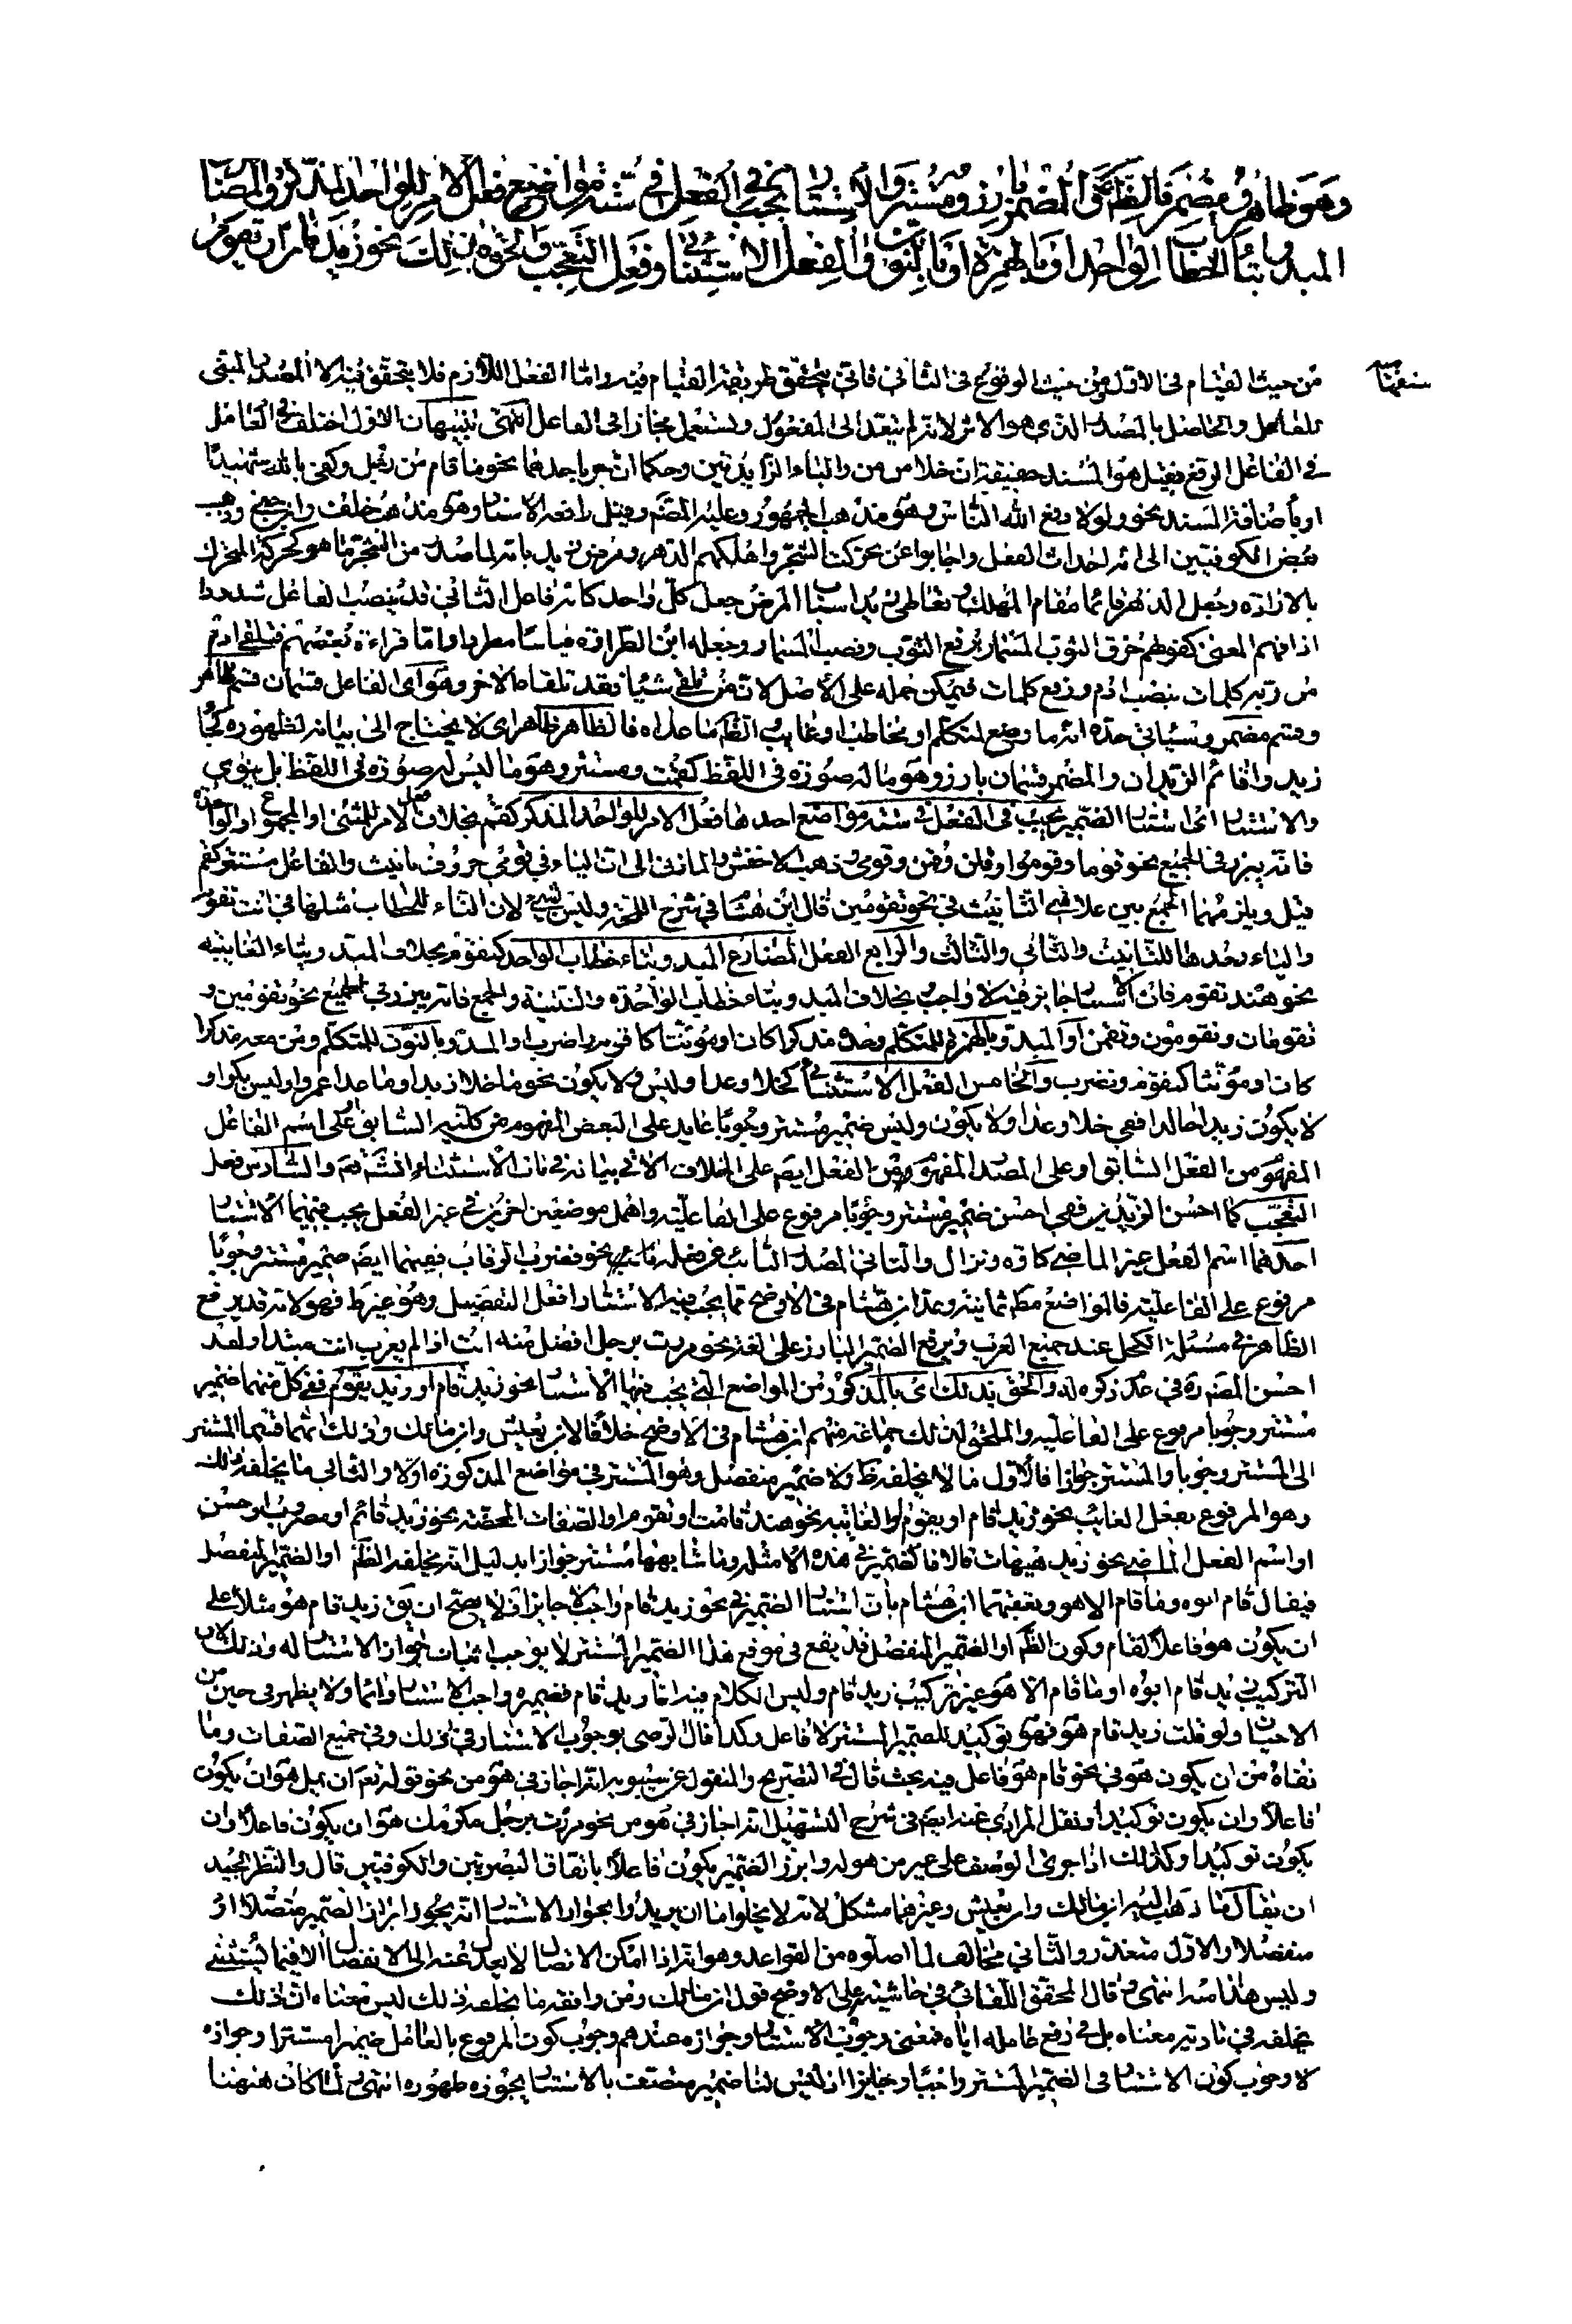 وهو ظاهر ومضمر فالظاهر والمضمر بارز ومستتر والاستتار يجب في الفعل في ستة مواضع فعل الامر للواحد المذكر والمضارع
المبدو بتاء الخطاب للواحد او بالهمزة او بالنون والفعل الاستثناء وفعل التعجب والحق بذلك نحو زيد قام او يقوم
من حيث القيام في الاول ومن حيث الوقوع في الثاني فاتي بتحقق طريقة القيام فيه واما الفعل اللازم فلا يتحقق فيه الا المصدر المبني
للفاعل والحاصل بالمصدر الذي هو الاثر لانه لم يتعد الى المفعول ويستعمل مجازا في الفاعل انتهى تنبيهات الاول اختلف في العامل
في الفاعل الرفع فقيل هو المسند حقيقة ان خلا من من والباء الزايدتين وحكما ان جر باحدهما نحو ما قام من رجل وكفى بالله شهيدا
او باضافة المسند نحو ولولا دفع الله الناس وهو مذهب الجمهور وعليه المصنف وقيل رافعه الاسناد وهو مذهب خلف وابن جني وذهب
بعض الكوفيين الى انه احداث الفعل واجابوا عن تحركت الشجر واهلكهم الدهر ومرض زيد بانه لما صدر من الشجر ما هو كحركة المتحرك
بالارادة وجعل الدهر قائما مقام المهلك وتعاطى زيد اسباب المرض جعل كل واحد كانه فاعل الثاني قد ينصب الفاعل شذوذا
اذا فهم المعنى كقولهم خرق الثوب المسمار برفع الثوب ونصب المسمار وجعله ابن الطراوة قياسا مطردا واما قراءة بعضهم فتلقى ادم
من ربه كلمات بنصب ادم ورفع كلمات فيمكن حمله على الاصل لان من تلقى شيئا فقد تلقاه الاخر وهو اي الفاعل قسمان قسم ظاهر
وقسم مضمر وسياتي حده انه ما وضع لمتكلم او مخاطب او غايب الظاهر ما عداه فالظاهر ظاهر اي لا يحتاج الى بيانه لظهوره كجاء
زيد واقائم الزيدان والمضمر قسمان بارز وهو ما له صورة في اللفظ كقمت ومستتر وهو ما ليس له صورة في اللفظ بل ينوى
والاستتار اي استتار الضمير يجب في الفعل في ستة مواضع احدها فعل الامر للواحد المذكر كقم بخلاف الامر للمثنى او المجموع او الواحدة
فانه يبرز في الجميع نحو قوما وقوموا وقمن وقومي وذهب الاخفش والمازني الى ان الياء في قومي حرف تانيث والفاعل مستتر كقم
قيل ويلزمهما الجمع بين علامتي التانيث في نحو تقومين قال ابن هشام في شرح اللمحة وليس بشيء لان التاء للخطاب مثلها في انت تقوم
والياء وحدها للتانيث والثاني والثالث والرابع الفعل المضارع المبدو بتاء خطاب الواحد كتقوم بخلاف المبدو بتاء الغايبة
نحو هند تقوم فان الاستتار جايز فيه لا واجب بخلاف المبدو بتاء خطاب الواحدة والتثنية والجمع فانه يبرز في الجميع نحو تقومين و
تقومان وتقومون وتقمن او المبدو بالهمزة للمتكلم وحده مذكرا كان او مؤنثا كاقوم واضرب او المبدو بالنون للمتكلم ومن معه مذكرا
كان او مؤنثا كنقوم ونضرب والخامس الفعل الاستثنائي كخلا وعدا وليس ولا يكون نحو ما خلا زيدا وما عدا عمروا وليس بكرا و
لا يكون زيد خالدا ففي خلا وعدا ولا يكون وليس ضمير مستتر وجوبا عايد على البعض المفهوم من كليه السابق او على اسم الفاعل
المفهوم من الفعل السابق او على المصدر المفهوم من الفعل ايضا على الخلاف الاتي بيانه في باب الاستثناء انشاء الله تعالى والسادس فعل
التعجب كما احسن الزيدين ففي احسن ضمير مستتر وجوبا مرفوع على الفاعلية واهمل موضعين اخرين في غير الفعل يجب فيهما الاستتار
احدهما اسم الفعل غير الماضي كاوه ونزال والثاني المصدر النائب عن فعله نحو فضرب الرقاب ففيهما ايضا ضمير مستتر وجوبا
مرفوع على الفاعلية فالمواضع ثمانية وعد ابن هشام في الاوضح مما يجب فيه الاستتار افعل التفضيل وهو غير فهو لانه قد يرفع
الظاهر في مسئلة الكحل عند جميع العرب ويرفع الضمير البارز على لغة نحو مررت برجل افضل منه انت اذا لم يعرب انت مبتدا ولقد
احسن المص في عدم ذكره له والحق بذلك اي بالمذكور من المواضع التي يجب فيها الاستتار نحو زيد قام او زيد يقوم ففي كل منهما ضمير
مستتر وجوبا مرفوع على الفاعلية والملحق لذلك جماعة منهم ابن هشام في الاوضح خلافا لابن يعيش وابن مالك وذلك انهما قسما المستتر
الى مستتر وجوبا والمستتر جوازا فالاول ما لا يخلفه ظاهر ولا ضمير منفصل وهو المستتر في مواضع المذكورة اولا والثاني ما يخلفه ذلك
وهو المرفوع بفعل الغائب نحو زيد قام او يقوم او الغائبة نحو هند قامت او تقوم او الصفات المحضة نحو زيد قائم او مضروب او حسن
او اسم الفعل الماضي نحو زيد هيهات قالا فالضمير في هذه الامثلة وما شابهها مستتر جوازا بدليل انه يخلفه الظاهر او الضمير المنفصل
فيقال قام ابوه وما قام الا هو وتعقبهما ابن هشام بان استتار الضمير في نحو زيد قام واجب لا جايز اذ لا يصح ان يق زيد قام هو مثلا على
ان يكون هو فاعلا لقام وكون الظاهر او الضمير المنفصل قد يقع في موقع هذا الضمير المستتر لا يوجب اثبات جواز الاستتار له وذلك لان
التركيب زيد قام ابوه او ما قام الا هو غير تركيب زيد قام وليس الكلام فيه اما زيد قام فضميره واجب الاستتار دائما ولا يظهر في حين من
الاحيان ولو قلت زيد قام هو فهو توكيد للضمير المستتر لا فاعل وكذا قال الرضي بوجوب الاستتار في ذلك وفي جميع الصفات وما
نفاه من ان يكون هو في نحو قام هو فاعل فيه بحث قال في التصريح والمنقول عن سيبويه انه اجاز في هو من نحو قوله تعالى ان يمل هو ان يكون
فاعلا وان يكون توكيدا ونقل المرادي عنه ايضا في شرح التسهيل انه اجاز في هو من نحو مررت برجل مكرمك هو ان يكون فاعلا وان
يكون توكيدا وكذلك اذا جرى الوصف على غير من هو له وابرز الضمير يكون فاعلا باتفاق البصريين والكوفيين قال والنظر الجيد
ان يقال ما ذهب اليه ابن مالك وابن يعيش وغيرهما مشكل لانه لا يخلو اما ان يريدوا بجواز الاستتار انه يجوز ابراز الضمير متصلا او
منفصلا والاول متعذر والثاني مخالف لما اصلوه من القواعد وهو انه اذا امكن الاتصال لا يعدل عنه الى الانفصال الا فيما يستثنى
وليس هذا منه انتهى وقال المحقق اللقاني في حاشيته على الاوضح قول ابن مالك ومن وافقه ما يخلفه ذلك ليس معناه ان ذلك
يخلفه في تادية معناه بل في رفع عامله اياه فمعنى وجوب الاستتار وجوازه عندهم وجوب كون المرفوع بالعامل ضميرا مستترا وجوازه
لا وجوب كون الاستتار في الضمير المستتر واجبا وجايزا اذ ليس لنا ضمير متصف بالاستتار يجوز ظهوره انتهى لما كان ههنا